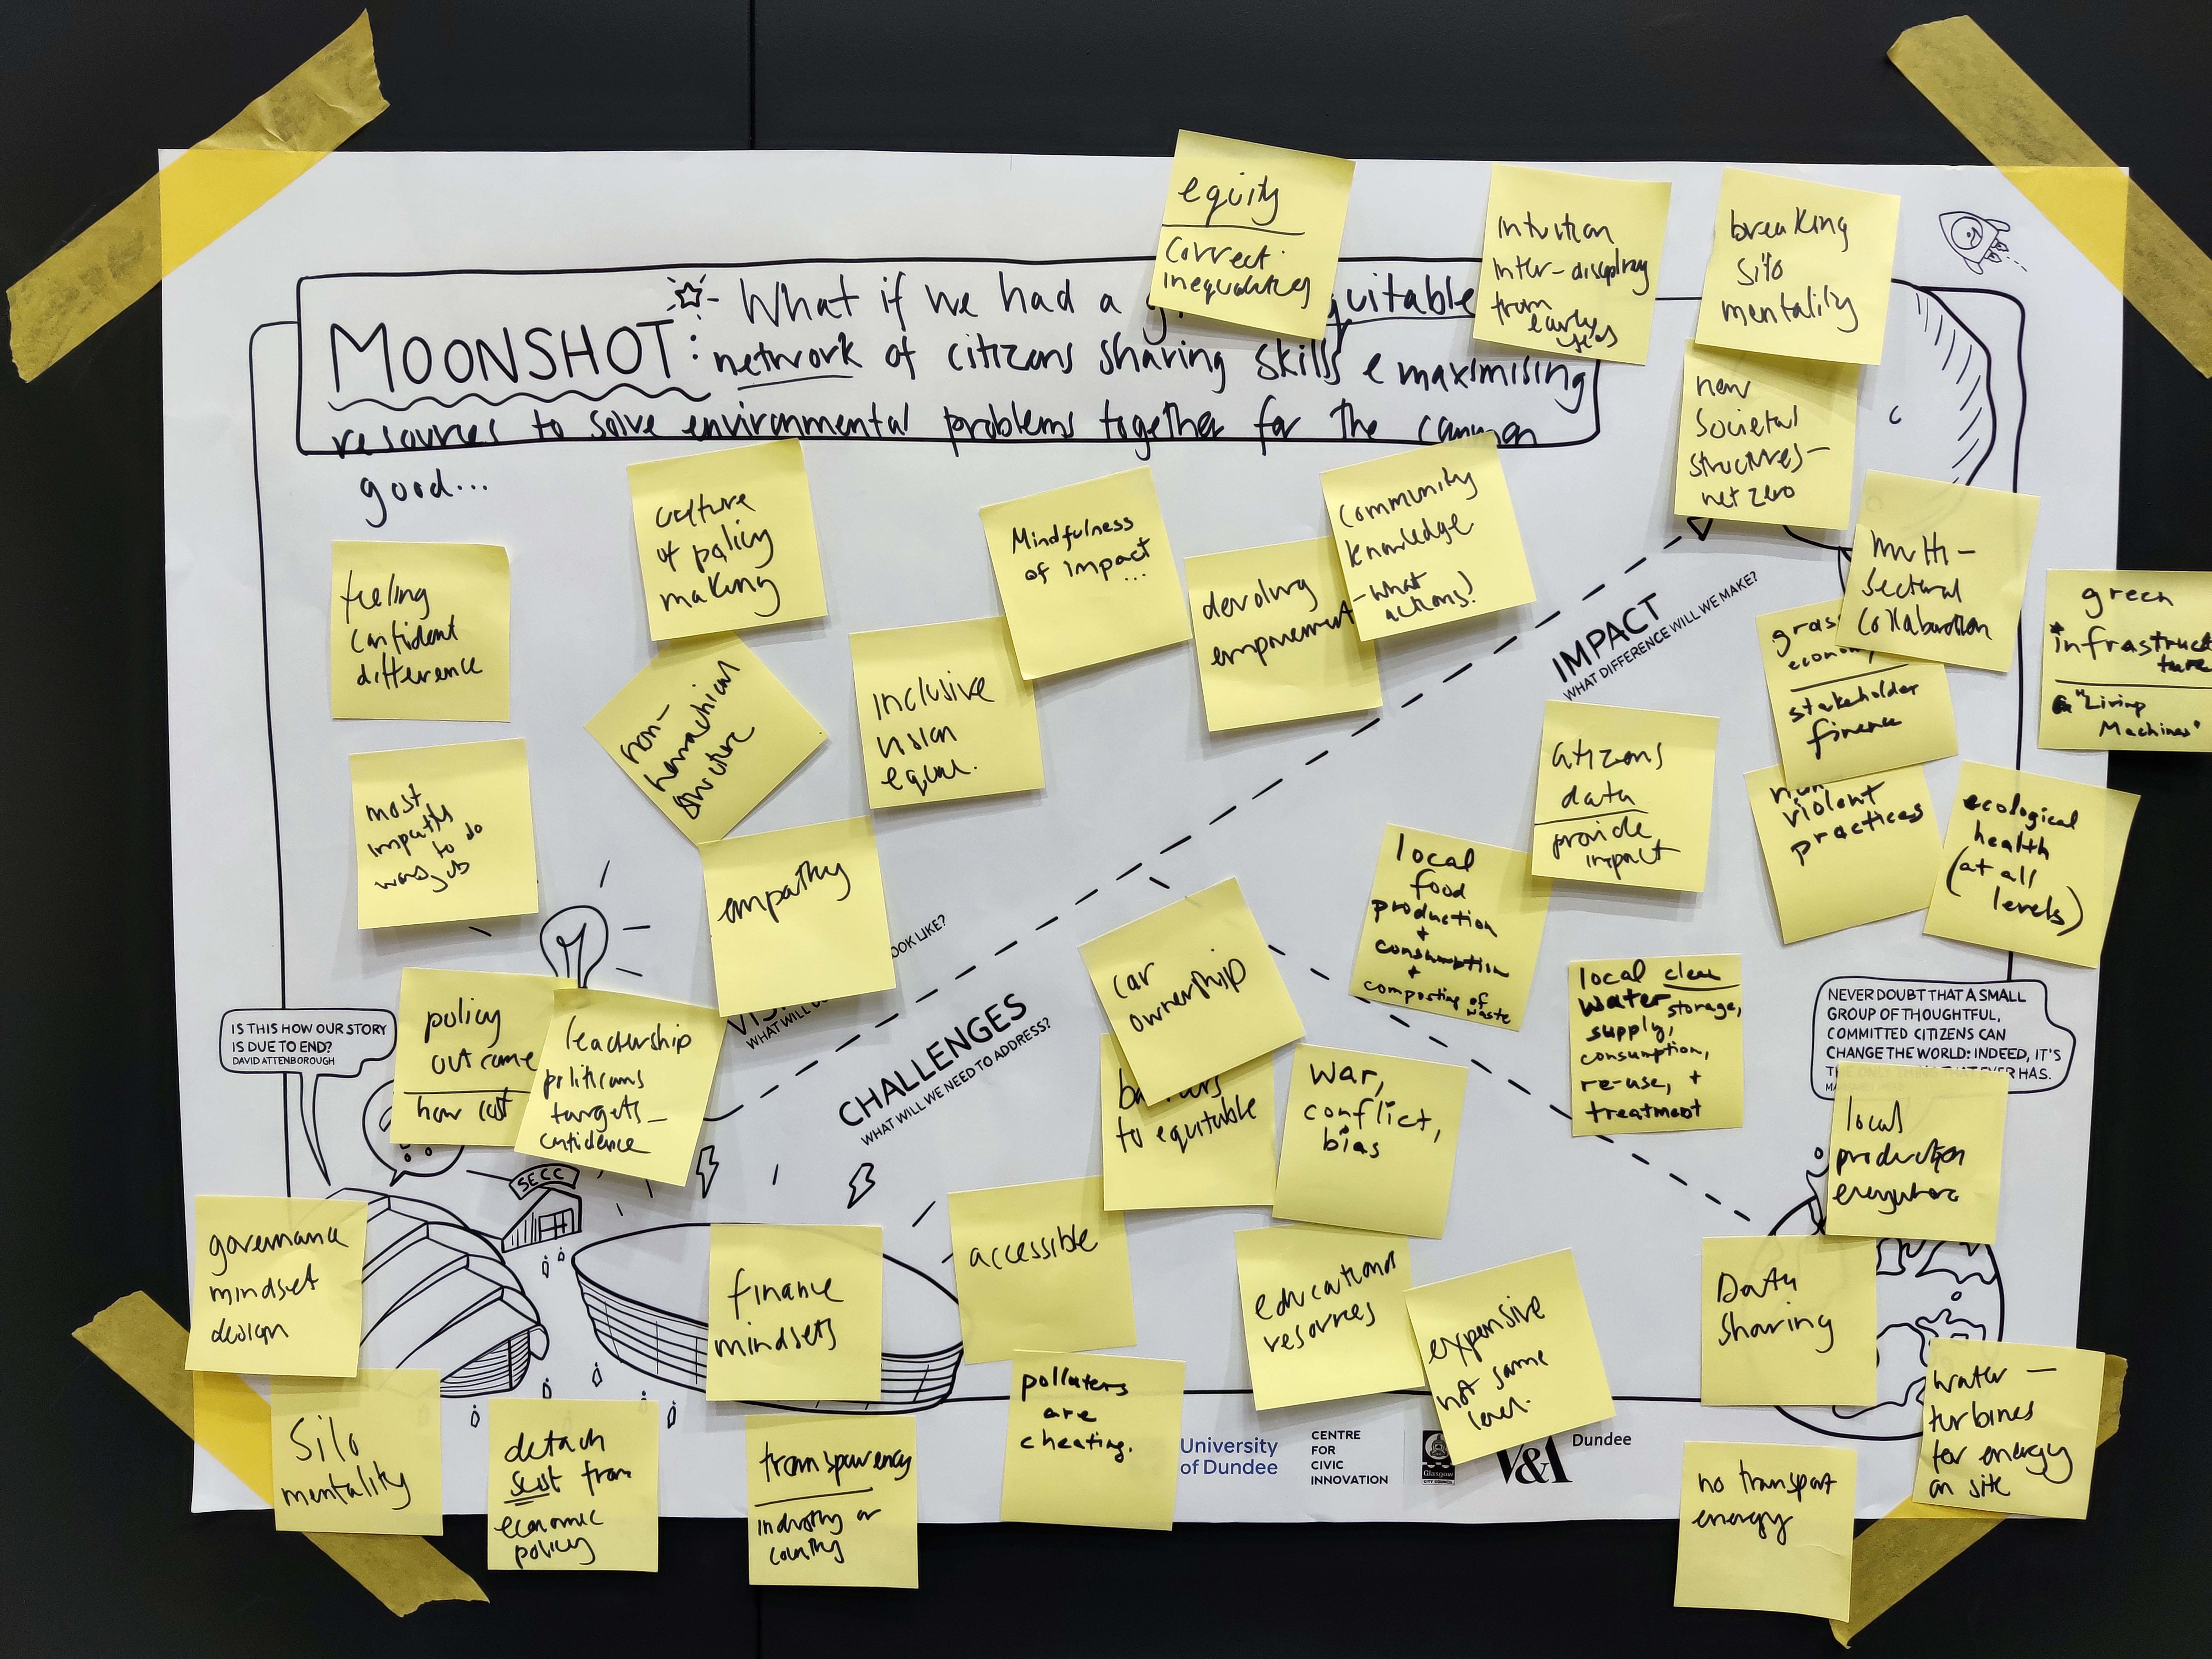 equity
correct
inequalities
intuition
inter-disciplinary
from
early
breaking
silo
mentality
What if we had a
quitable
MOONSHOT:
network of citizens sharing skills & maximising
resources to solve environmental problems together for the common
good...
new
societal
structures-
net zero
feeling
confident
difference
culture
of policy
making
Mindfulness
of impact
...
devolving
empowerment
community
knowledge
-what
actions?
multi-
sectoral
collaboration
green
infrastruc
ture
"Living
Machines"
non-
hierarchical
structure
inclusive
vision
equal.
IMPACT
WHAT DIFFERENCE WILL WE MAKE?
gras
econom
stakeholder
finance
most
to do
empathy
citizens
data
provide
impact
non
violent
practices
ecological
health
(at all
levels)
local
food
production
+
consumption
+
composting of
waste
car
ownership
local clean
water storage,
supply,
consumption,
re-use, +
treatment
OOK LIKE?
VIS
WHAT WILL
CHALLENGES
WHAT WILL WE NEED TO ADDRESS?
policy
outcome
how
leadership
politicians
targets-
confidence
IS THIS HOW OUR STORY
IS DUE TO END?
DAVID ATTENBOROUGH
NEVER DOUBT THAT A SMALL
GROUP OF THOUGHTFUL,
COMMITTED CITIZENS CAN
CHANGE THE WORLD: INDEED, IT'S
THE ONLY THING THAT EVER HAS.
to equitable
war,
conflict,
bias
local
production
everywhere
SECC
governance
mindset
design
finance
mindsets
accessible
educational
resources
expensive
not same
level.
Data
sharing
silo
mentality
detach
from
economic
policy
transparency
industry or
country
polluters
are
cheating.
University
of Dundee
CENTRE
FOR
CIVIC
INNOVATION
Glasgow
CITY COUNCIL
V&A
Dundee
water-
turbines
for energy
on site
no transport
energy